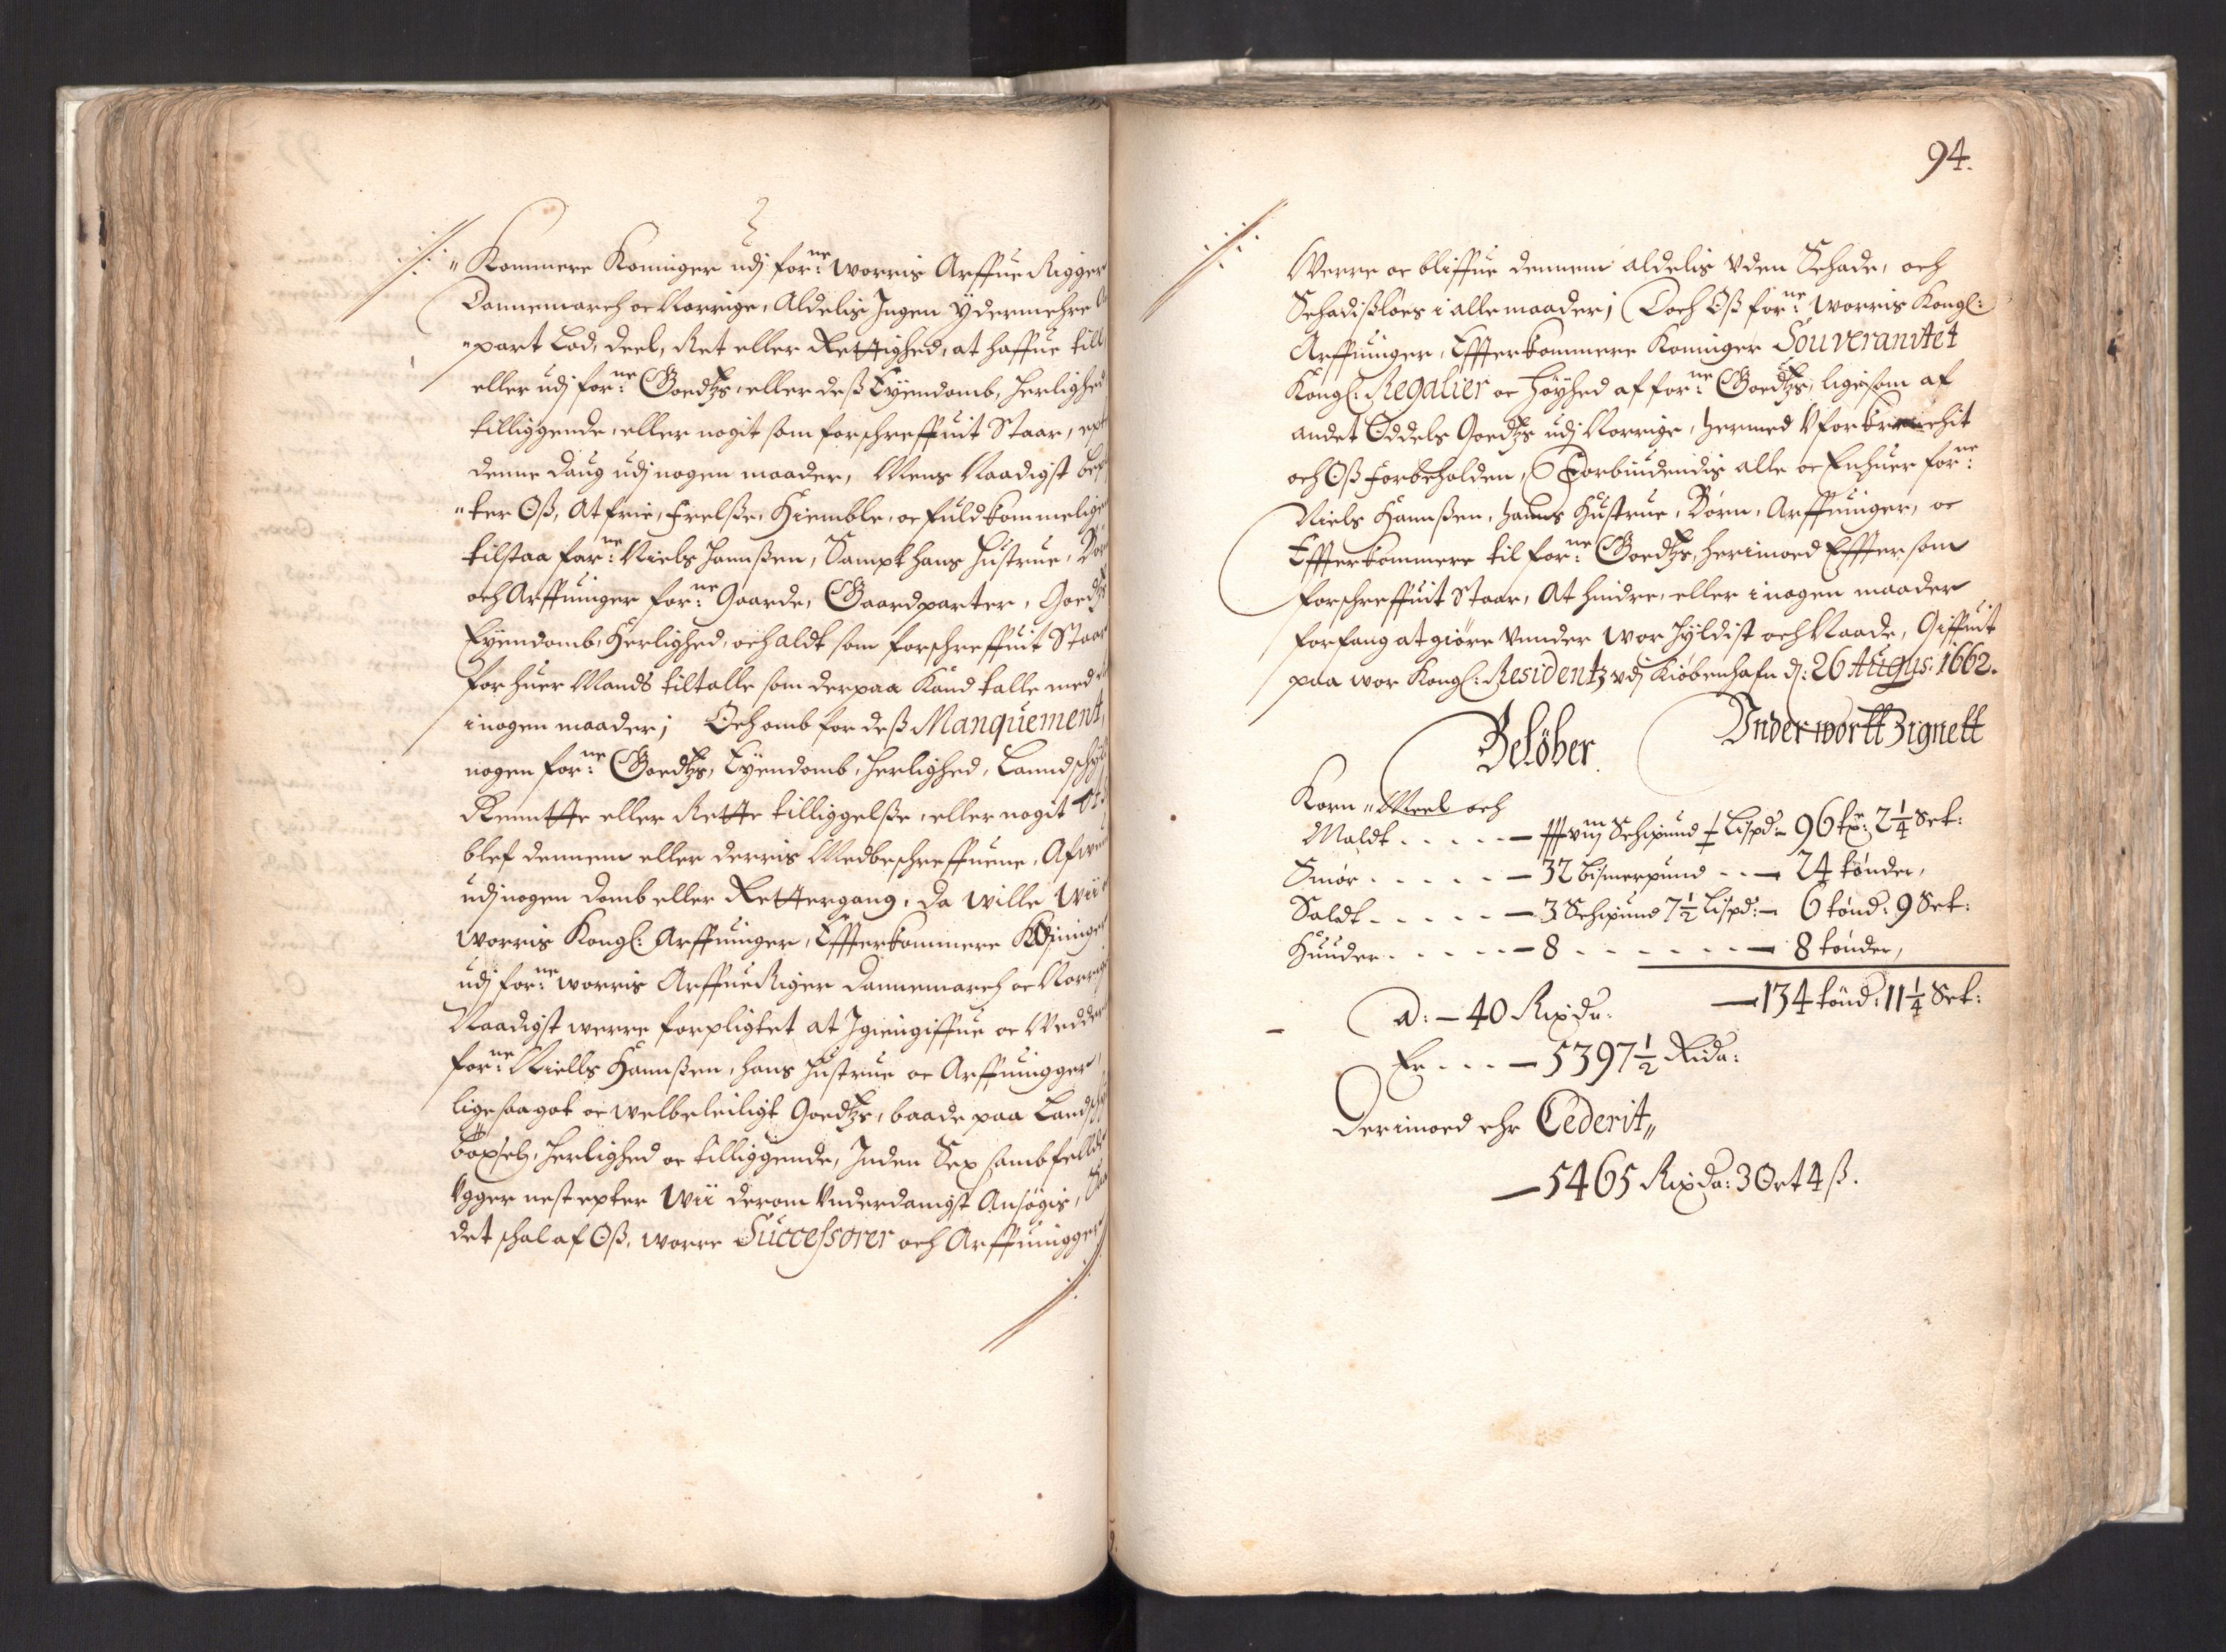 "Kommere Konninger udj for:ne worris Arffue Rigger
Dannemarch oc Norrige, Aldelis Ingen ydermehre
"part Lod, deel, Ret eller Rettighed, at haffue till
eller udj for:ne Goedtzs, eller deß Eyendomb, herlighed
tilliggende, eller nogit som forschreffuit Staar,
denne daug udj nogen maader, Mens Naadigst
"ter Oß, At frie, frelße, Hiemble, oc fuldkommeligen
tilstaa for:ne Niels Hannßen, Sampt hans Hustrue,
och Arffuinger for:ne Gaarde, Gaardparter, Goedtzs
Eyendomb, Herlighed, och aldt som forschreffuit Staar
for huer Mands tiltalle som derpaa Kand talle med
i nogen maader; Och omb for deß Manquement,
nogen for:ne Goedtzs, Eyendomb, herlighed, Landschyld
Renntte eller Rette tilliggelße, eller nogit
blef dennem eller derris Medbeschreffuene, Afwundet
udj nogen domb eller Rettergang, da wille Wii
worris Kongl: Arffuinger, Effterkommere Koninger
udj for:ne worris Arffue Riger Dannemarch oc Norrige
Naadigst werre forpligtet at Igiengiffue oc Wedder
for:ne Niells Hannßen, hans Hustrue oc Arffuingger,
lige saa got oc welbeleiligt Goedtzs, baade paa Landschyld
böxsel, Herlighed oc tilliggende, Inden Sex sambfellde
Vgger nest epter Wii derom Underdanigst Ansøgis,
det schal af Oß, worre Successorer och Arffuingger
94.
Werre oc bliffue dennem aldelis uden Schade, och
Schadißløes i alle maader; Doch Oß for:ne worris Kongl:
Arffuinger, Effterkommere Konninger Souveranitet
Kongl: Regalier oc Høyhed af for:ne Goedtzs, ligesom af
andet Oddels Goedtzs udj Norrige, hermed Uforkrenchit
och Oß forbeholden, Forbiudendis alle oc Enhuer for:ne
Niels Hannßen, hanns Hustrue, Børn, Arffuinger, oc
Effterkommere til for:ne Goedtzs, herimoed Effter som
forschreffuit Staar, At hindre, eller i nogen maader
forfang at giøre Vunder Wor Hyldist och Naade, Giffuit
paa wor Kongl: Residentz udj Kiøbenhafn d: 26 Augus: 1662.
Beløber Under wortt Zignett
Korn "Meel och
Maldt . . . . . — Schipund Lispd — 96 2 1/4 Set:
Smør . . . . . — 32 bismerpund . . — 24 tønder,
Saldt . . . . . — 3 Schipund 7 1/2 Lispd: — 6 tønd: 9 Set:
Huuder . . . . . — 8 . . . . . . — 8 tønder,
— 134 tønd: 11 1/4 Set:
A: — 40 Rixdr:
Er . . . — 5397 1/2 Rixdr:
Derimoed ehr Cederit"
— 5465 Rixdr: 3 Ort 4 ß.